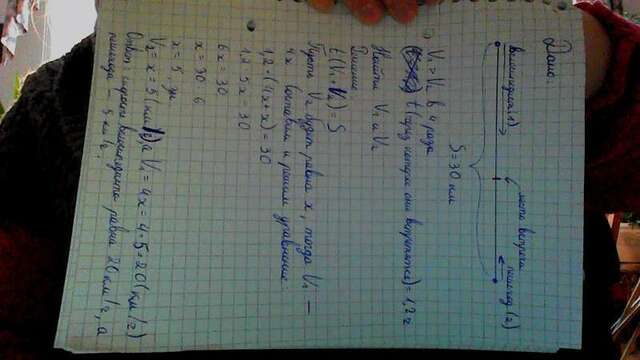 Дано:
место встречи
велосипедист(1)
пешеход (2)
S = 30 км
V₁ > V₂ в 4 раза
t (через которое они встретятся) = 1,2 ч
Найти V₁ и V₂
Решение
t(V₁+V₂)=S
Пусть V₂ будет равна x, тогда V₁ —
4x Составим и решим уравнение:
1,2·(4x+x)=30
1,2·5x=30
6x=30
x=30:6
x=5,
V₂=x=5(км/ч), а V₁=4x=4·5=20(км/ч)
Ответ: скорость велосипедиста равна 20км/ч, а
пешехода — 5 км/ч.